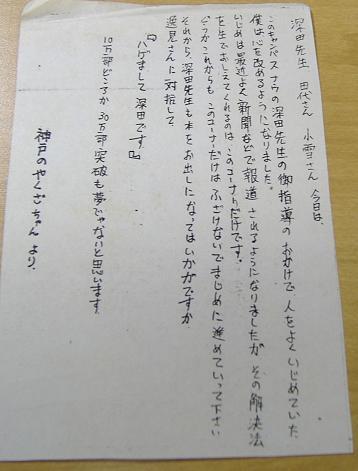 深田先生 田代さん 小雪さん 今日は、
このキャンパスナウの深田先生の御指導のおかげで、人をよくいじめていた
僕は心を改めるようになりました。
いじめは最近よく新聞などで報道されるようになりましたが その解決法
を生でおしえてくれるのは このコーナーだけです。
どうかこれからも このコーナーだけは ふざけないで まじめに進めていって下さい
それから、深田先生も本をお出しになってはいかがですか
逸見さんに対抗して、
『ハゲまして深田です。』
10万部どころか 30万部突破も夢じゃないと思います。
神戸のやくざちゃんより、